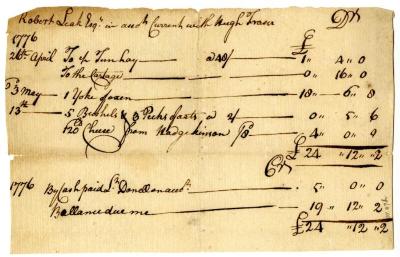 Robert Leak Esqr. in accot. Current with Hugh Fraser Dr
1776 £
26th April To ½ Tun hay a 48/ 1" 4" 0
To the Cartage 0" 16" 0
3 May 1 Yoke of oxen 18" 6" 8
13th 5 Bushels & 3 Pecks of oats a 2/ 0" 5" 6
Cheese from Hadgekinson 4" 0" 0
£24 "12" 2
Cr
1776 By Cash paid Donellon 5" 0" 0
Ballance due me 19 "12 "2
£24 "12 "2